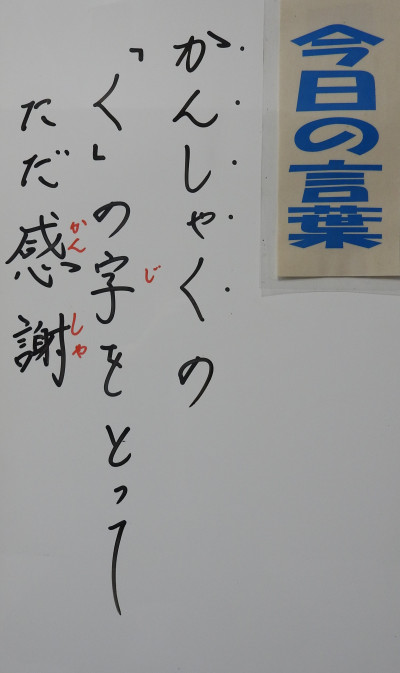 今日の言葉
かんしゃくの
「く」の字をとって
ただ感謝
じ
かん
しゃ